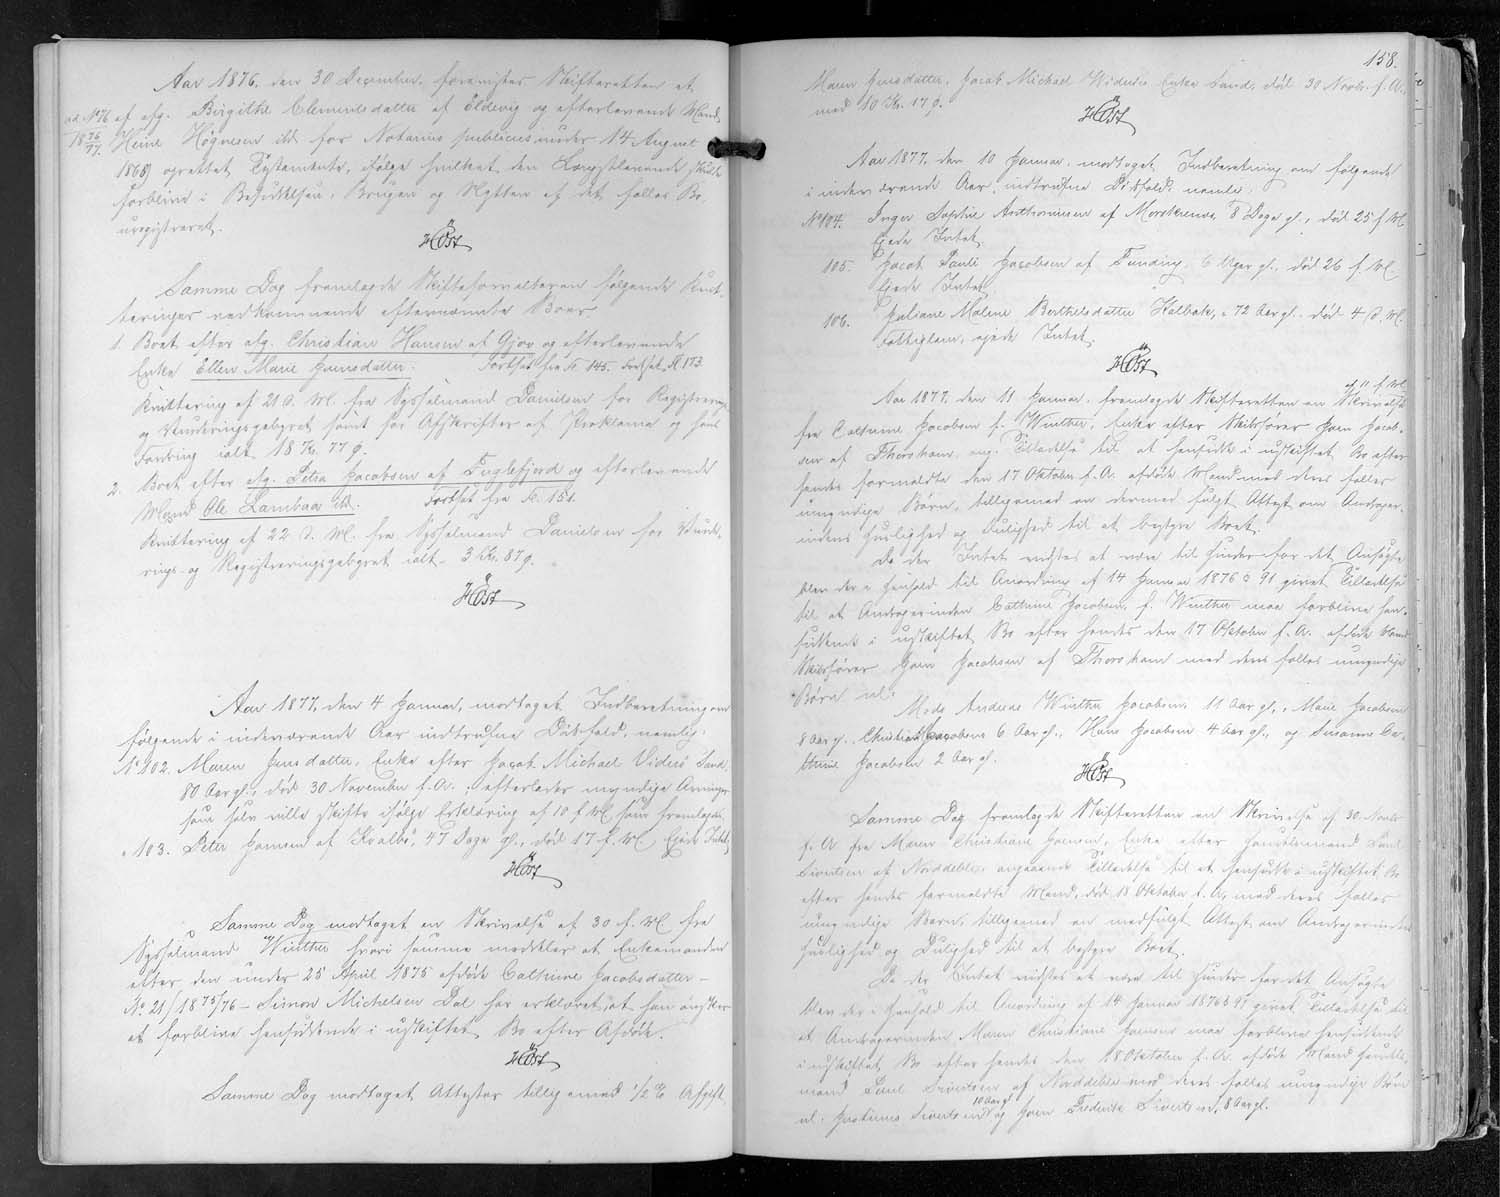 Aar 1876, den 30 December, foretoges Skifteretten et
ad. No 76 af afg. Birgithe Clementsdatter af Eldevig og efterlevende Mand
18 76/77. Heine Høgnesen ibd. for Notarius publicus under 14 August
1868 oprettet Testamente, ifølge hvilket den Længstlevende skulde
forblive i Besiddelsen, Brugen og Nytten af det fælles Bo,
uregistreret.
HÖst
Samme Dag fremlagde Skifteforvalteren følgende Kvit-
teringer vedkommende efternævnte Boer
1. Boet efter afg. Christian Hansen af Gjov og efterlevende
Enke Ellen Marie Joensdatter. Fortsat fra Fo 145. Fortsat, Fo 173.
Kvittering af 21 d. M. fra Sysselmand Danielsen for Registrerings-
og Vurderingsgebyret samt for Afskrifter af Proklama og hans
Fordring ialt 18 Kr. 77 Ø.
2. Boet efter afg. Petra Jacobsen af Fuglefjord og efterlevende
Mand Ole Lambaa ibd. Fortsat fra Fo. 151.
Kvittering af 22 d. M. fra Sysselmand Danielsen for Vurde-
rings- og Registreringsgebyret ialt 3 Kr. 87 Ø.
HÖst
Aar 1877, den 4 Januar, modtoges Indberetning om
følgende i indeværende Aar indtrufne Dødsfald, nemlig:
No 102. Maren Jensdatter, Enke efter Jacob Michael Viderö Sand,
80 Aar gl., død 30 November f. A., efterlader myndige Arvinger
som selv ville skifte ifølge Erklæring af 10 f. M. som fremlagdes.
" 103. Peter Hansen af Kvalbö, 47 Dage gl., død 17 f. M. Ejede Intet.
HÖst
Samme Dag modtoges en Skrivelse af 30 f. M. fra
Sysselmand Winther hvori samme meddeler at Enkemanden
efter den under 25 April 1875 afdøde Cathrine Jacobsdatter –
No 21/1875/76 – Simon Michelsen Dal har erklæret, at han ønsker
at forblive hensiddende i uskiftet Bo efter Afdøde.
HÖst
Samme Dag modtoges Attester tilligemed 1/2 % Afgift
158.
Maren Jensdatter, Jacob Michael Viderös Enke Sand, død 30 Novb. f. A.,
med 10 Kr. 17 Ø.
HÖst
Aar 1877, den 10 Januar, modtoges Indberetning om følgende
i indeværende Aar indtrufne Dødsfald nemlig:
No 104. Inger Sophie Anthonisen af Morskranes, 8 Dage gl., død 25 f. M.
Ejede Intet.
105. Jacob Pauli Jacobsen af Funding, 6 Uger gl., død 26 f. M.
Ejede Intet.
106. Juliane Malene Berthelsdatter Kalbak, 72 Aar gl. død 4 d. M.
Fattiglem, ejede Intet.
HÖst
Aar 1877, den 11 Januar, fremlagde Skifteretten en Skrivelse af 11 f. M.
fra Cathrine Jacobsen f. Winther, Enke efter Skibsfører Joen Jacob-
sen af Thorshavn, ang. Tilladelse til at hensidde i uskiftet Bo efter
hendes formeldte den 17 Oktober f. A. afdøde Mand med deres fælles
umyndige Børn, tilligemed en dermed fulgt Attest om Androger-
indens Huslighed og Duelighed til at bestyre Boet.
Da der Intet vidstes at være til Hinder for det Ansøgte
blev der i Henhold til Anordning af 14 Januar 1876 § 91 givet Tilladelse
til at Andragerinden Cathrine Jacobsen, f. Winther maa forblive hen-
siddende i uskiftet Bo efter hendes den 17 Oktober f. A. afdøde Mand
Skibsfører Joen Jacobsen af Thorshavn med deres fælles umyndige
Børn nl:
Mads Andreas Winther Jacobsen, 11 Aar gl., Marie Jacobsen
8 Aar gl., Christian Jacobsen 6 Aar gl., Hans Jacobsen 4 Aar gl., og Susanne Ca-
thrine Jacobsen 2 Aar gl.
HÖst
Samme Dag fremlagde Skifteretten en Skrivelse af 30 Novbr
f. A. fra Maren Christiane Joensen, Enke efter Handelsmand Paul
Sivertsen af Norddeble, angaaende Tilladelse til at hensidde i uskiftet Bo
efter hendes formeldte Mand, død 18 Oktober f. A., med deres fælles
umyndige Børn, tilligemed en medfulgt Attest om Andragerindens
Huslighed og Duelighed til at bestyre Boet.
Da der Intet vidstes at være til Hinder for det Ansøgte
blev der i Henhold til Anordning af 14 Januar 1876 § 91 givet Tilladelse til
at Andragerinden Maren Christiane Joensen maa forblive hensiddende
i uskiftet Bo efter hendes den 18 Oktober f. A. afdøde Mand Handels-
mand Paul Sivertsen af Norddeble med deres fælles umyndige Børn
nl. Justinus Sivertsen 10 Aar gl og Joen Frederik Sivertsen, 8 Aar gl.